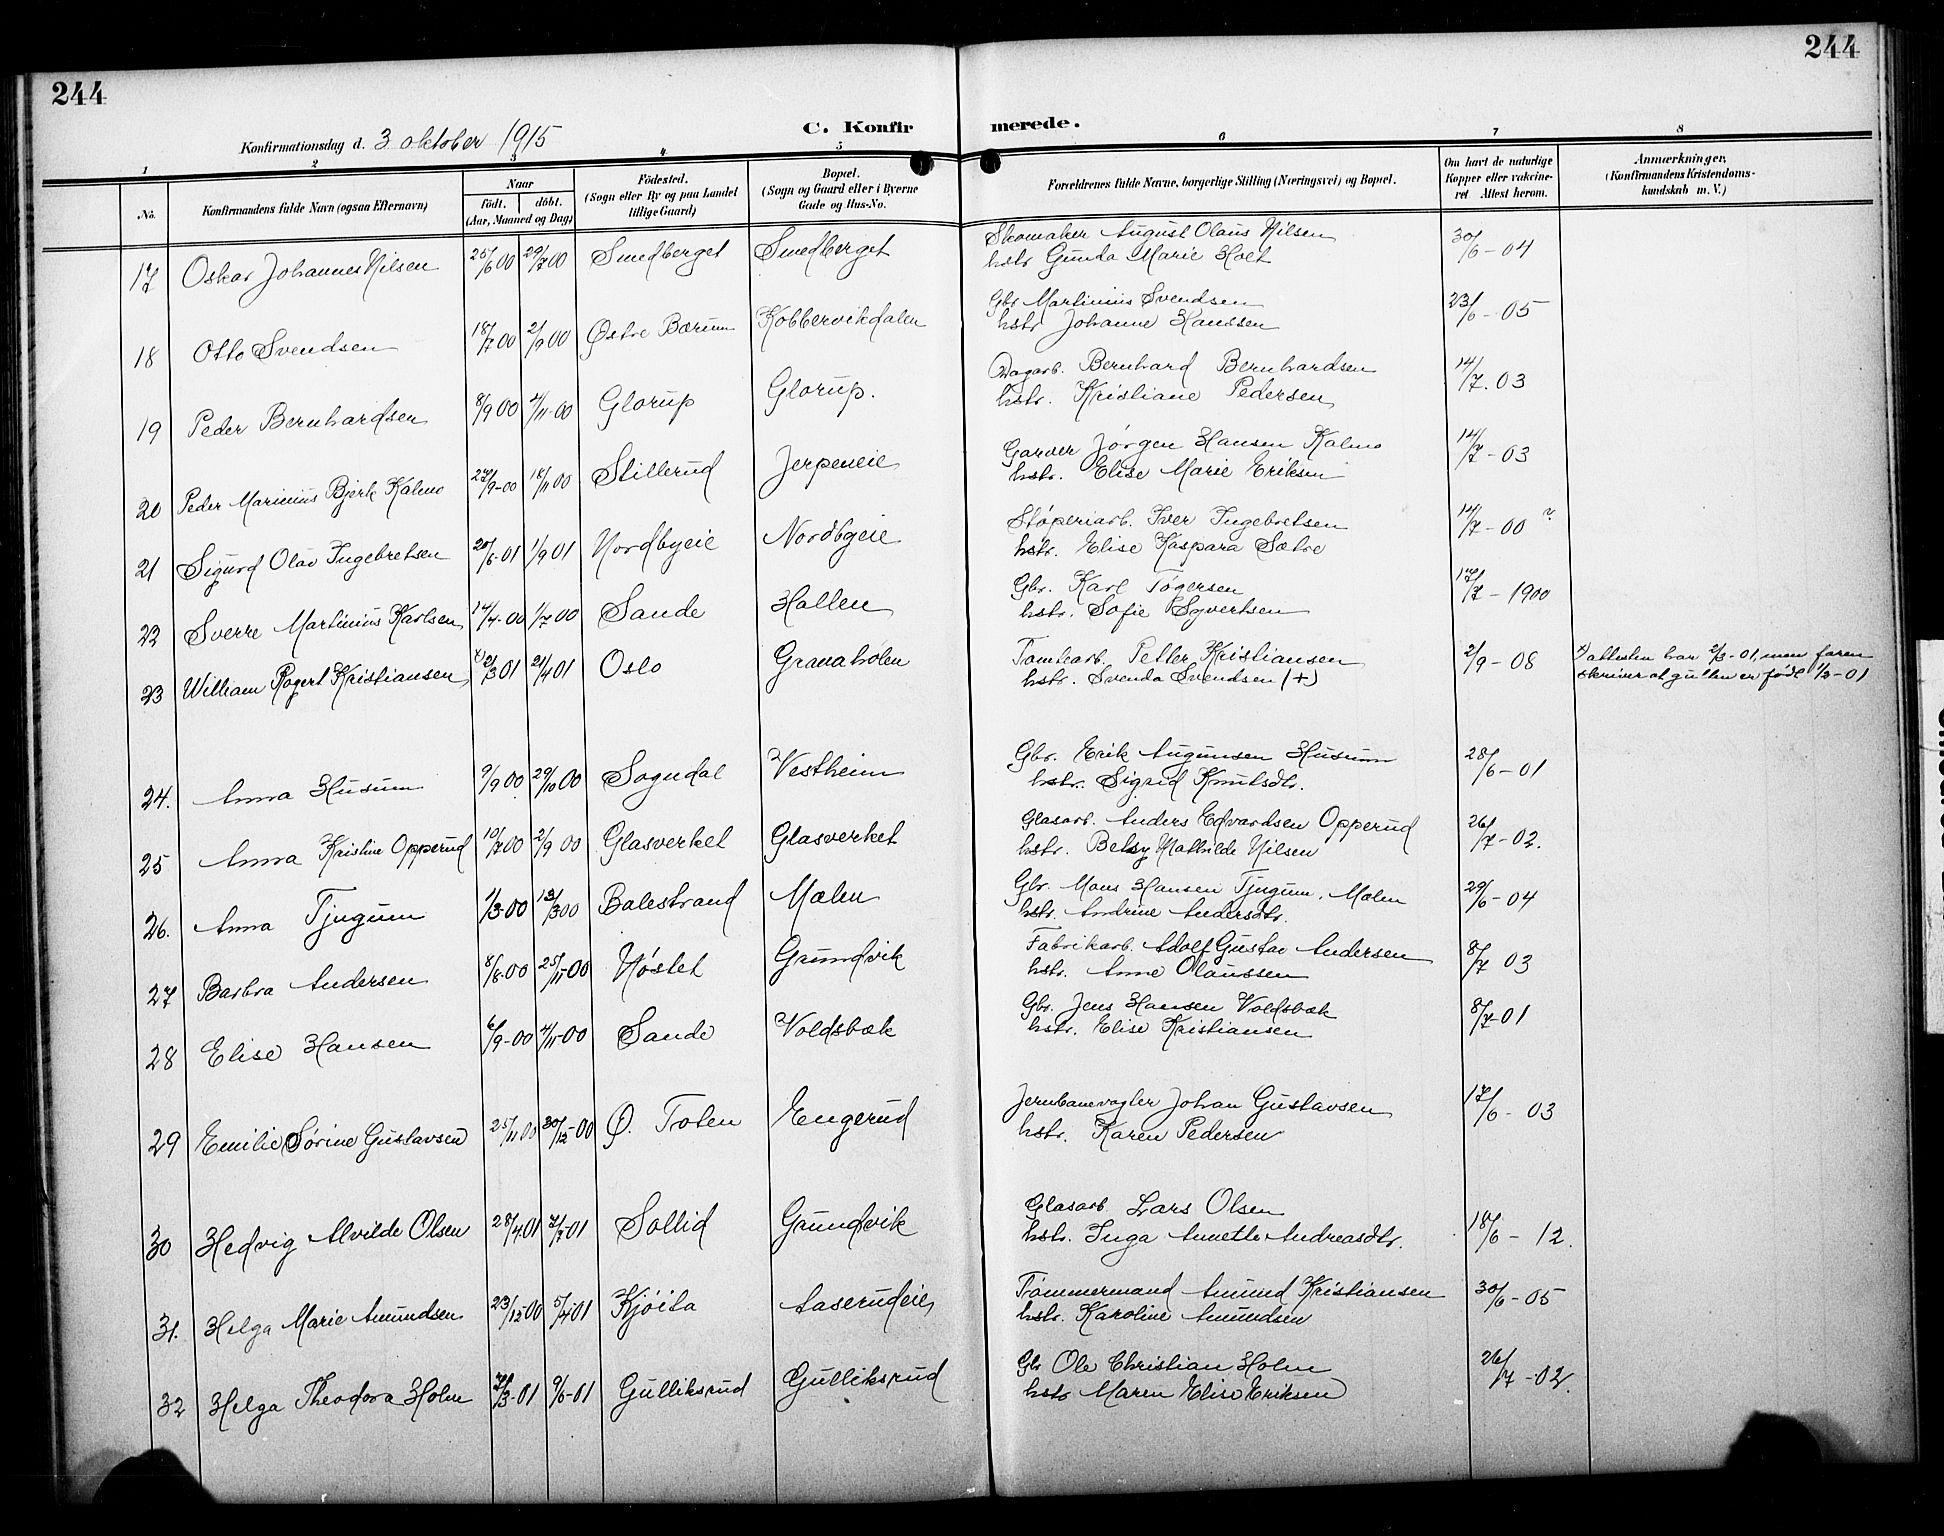 244
244
C. Konfirmerede.
Konfirmationsdag d. 3 oktober 1915
1 2 3 4 5 6 7 8
No.
Konfirmandens fulde Navn (ogsaa Efternavn)
Naar
födt. döbt.
(Aar, Maaned og Dag)
Födested.
(Sogn eller By og paa Landet
tillige Gaard)
Bopæl.
(Sogn og Gaard eller i Byerne
Gade og Hus-No.
Forældrenes fulde Navne, borgerlige Stilling (Næringsvei) og Bopæl.
Om havt de naturlige
Kopper eller vakcine-
ret Attest herom.
Anmærkninger,
(Konfirmandens Kristendoms-
kundskab m. V.)
17 Oskar Johannes Nilsen 25/6 00 29/7 00 Smedberget Smedberget Skomaker August Olaus Nilsen 30/6-04
hstr Gunda Marie Holt
18 Otto Svendsen 18/7 00 2/9 00 Østre Bærum Kobbervikdalen Gbr Martinius Svendsen 23/6-05
hstr Johanne Hanssen
19 Peder Bernhardsen 8/9 00 4/11-00 Glorup Glorup. Dagarb. Bernhard Bernhardsen 14/7.03
hstr. Kristiane Pedersen
20 Peder Marinius Bjerk Kalmo 27/9-00 18/11 00 Stillerud Jerpeneie Garver Jørgen Hansen Kalmo 14/7-03
hstr. Elise Marie Eriksen
21 Sigurd Olav Ingebretsen 20/6-01 1/9 01 Nordbyeie Nordbyeie Støperiarb. Iver Ingebretsen 14/7-00 ?
hstr. Elise Kaspara Sætre
22 Sverre Martinius Karlsen 14/4-00 1/7 00 Sande Hallen Gbr. Karl Tøgersen 17/7-1900
hstr. Sofie Syvertsen
23 William Rogert Kristiansen x) 2/3 01 21/4 01 Oslo Granaholen Tomtearb. Petter Kristiansen 2/9-08 x) attesten har 2/3-01, men faren
hstr. Svenda Svendsen (+) skriver at gutten er født 1/3-01
24. Anna Husum 9/9 00 29/10 00 Sogndal Vestheim Gbr. Erik Augunsen Husum 28/6-01
hstr. Sigrid Knutsdtr.
25 Anna Kristine Opperud 10/7 00 2/9 00 Glasverket Glasverket Glasarb. Anders Edvardsen Opperud 26/7-02.
hstr. Betsy Mathilde Nilsen
26. Anna Tjugum 1/3-00 13/3 00 Balestrand Mælen Gbr. Mons Hansen Tjugum, Mælen 29/6-04
hstr. Andrine Andersdtr.
27 Barbra Andersen 8/8-00 25/11-00 Nøstet Grundvik Fabrikarb. Adolf Gustav Andersen 8/7 03
hstr. Anne Olaussen
28 Elise Hansen 6/9-00 4/11-00 Sande Voldsbæk Gbr. Jens Hansen Voldsbæk 8/7-01
hstr. Elise Kristiansen
29 Emilie Sørine Gustavsen 25/11 00 30/12-00 Ø. Toten Engerud Jernbanevogter Johan Gustavsen 17/6-03
hstr. Karen Pedersen
30 Hedvig Alvilde Olsen 28/4 01 7/7-01 Sollid Grundvik Glasarb Lars Olsen 18/6-12.
hstr. Inga Annette Andreasdtr.
31. Helga Marie Amundsen 23/12-00 5/4-01 Kjøita Aaserudeie Tømmermand Amund Kristiansen 30/6-05
hstr. Karoline Amundsen
32 Helga Theodora Holm /3-01 9/6-01 Gulliksrud Gulliksrud Gbr Ole Christian Holm 26/7-02.
hstr Maren Elise Eriksen